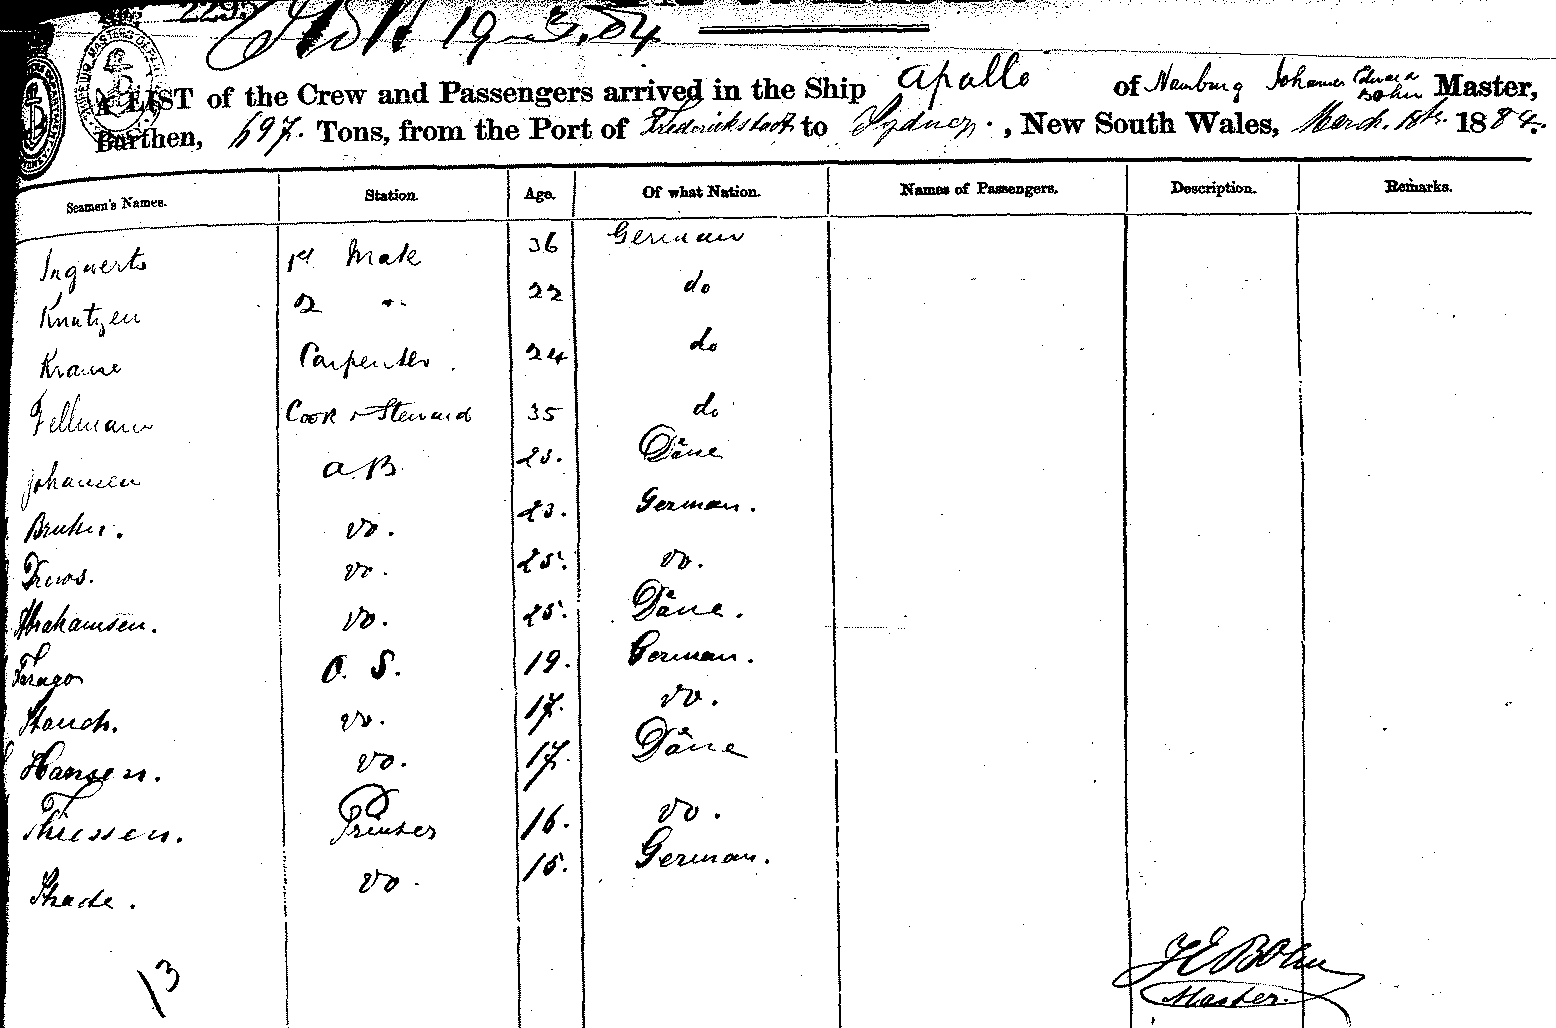 19-3.84
A LIST of the Crew and Passengers arrived in the Ship Apollo of Hamburg Johannes Edward Bohn Master,
Burthen, 697. Tons, from the Port of Frederickstadt to Sydney. , New South Wales, March. 18th. 1884.
Seamen's Names. Station. Age. Of what Nation. Names of Passengers. Description. Remarks.
Ingwerts 1st Mate 36 German
Knutzen 2 " 22 do
Krause Carpenter. 24 do
Fellmann Cook & Steward 35 do
Johansen A B 23. Däne
do. 23. German.
Drews. do. 25. do.
Abrahamsen. do. 25. Däne.
O. S. 19. German.
do. 17. do.
Hansen. do. 17. Däne
Thiessen. 16. do.
Thade. do. 15. German.
13
J E Bohn
Master.